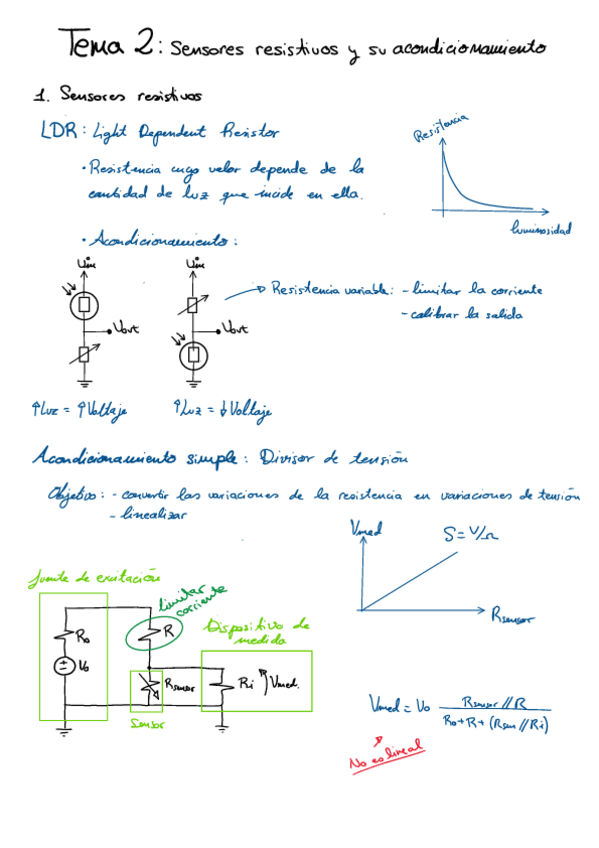 Tema 2: Sensores resistivos y su acondicionamiento
1. Sensores resistivos
LDR: Light Dependent Resistor
· Resistencia cuyo valor depende de la
cantidad de luz que incide en ella.
Resistencia
luminosidad
· Acondicionamiento:
Vin
Vin
Vout
Vout
Resistencia variable: - limitar la corriente
- calibrar la salida
↑Luz = ↑Voltaje
↑Luz = ↓Voltaje
Acondicionamiento simple: Divisor de tensión
Objetivo: - convertir las variaciones de la resistencia en variaciones de tensión
- linealizar
Vmed
S=V/Ω
Rsensor
fuente de excitación
limitar
corriente
Dispositivo de
medida
Ro
R
Vo
Rsensor
Ri
Vmed.
Sensor
Vmed = Vo Rsensor // R
Ro + R + (Rsen // Ri)
No es lineal